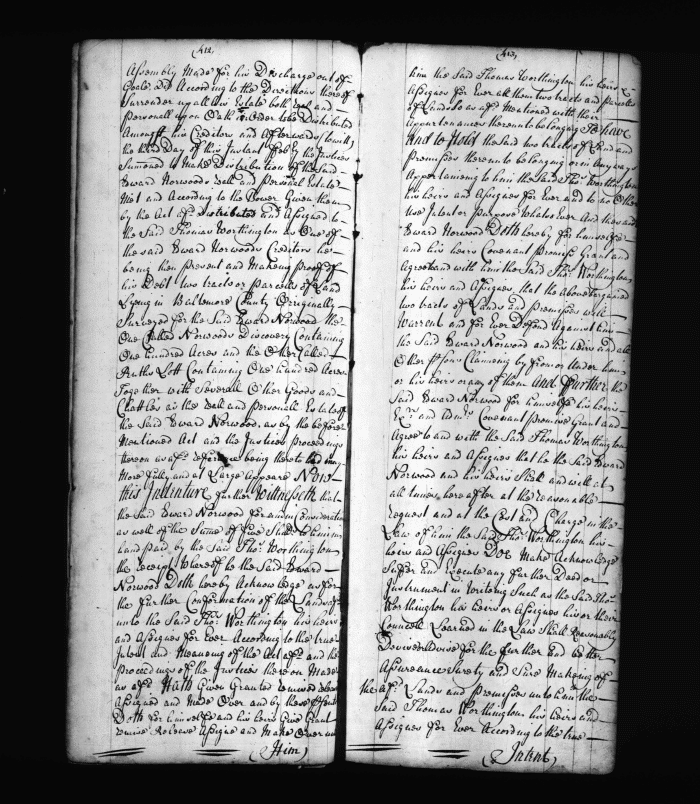 412
Assembly Made for his Discharge out of
Goale and According to the Directions thereof
Surrender up all his Estate both real and
Personall upon Oath to be Distributed
Amongst his Creditors and Afterwards towitt
the third Day of this Instant Feb by the Justices
Summoned to Make Distribution of the Said
Edward Norwoods reall and Personal Estate
Met and According to the Power Given them
by the Act afd. Distributed and Assigned to
the Said Thomas Worthington as One of
the Said Edward Norwoods Creditors he
being then present and Making Proof of
his Debt two tracts or parcells of Land
Lying in Baltemore County Originally
Surveyed for the Said Edward Norwood the
One Called Norwoods Discovery Containing
One hundred Acres and the Other Called
Ruths Lott Containing One hundred Acres
Together with Severall Other Goods and
Chattles as the reall and personall Estate of
the Said Edward Norwood, as by the before
Mentioned Act and the Justices proceedings
thereon as afd. reference being thereto had may
More fully and at Large Appeare Now
this Indenture further Wittnesseth that
the Said Edward Norwood for and in Consideration
as well of the Sume of five Shills. to him in
hand paid by the Said Thos. Worthington
the receipt Whereof he the Said Edward
Norwood Doth hereby Acknowledge as for
the further Confermation of the Lands afd.
unto the Said Thos. Worthington his heirs
and Assignes for Ever According to the true
Intent and Meaning of the Act afd. and the
Proceedings of the Justices thereon Made
as afd. Hath Given Granted remised
Assigned and Made Over and by these psents
Doth for himself and his heirs Give Grant
remise Release Assigne and Make Over unto
Him
413
him the Said Thomas Worthington his heirs &
Assignes for Ever all them two tracts and parcells
of Lands so as afd. Mentioned with their
appurtenances thereunto belonging To have
And to Hold the Said two tracts of Land and
premisses thereunto belonging or in Any ways
Appertaineing to him the Said Thos. Worthington
his heirs and Assignes for Ever and to no Other
use Intent or purpose Whatsoever And the Said
Edward Norwood Doth hereby for himselfe
and his heirs Covenant Promise Grant and
Agree to and with him the Said Thos. Worthington
his heirs and Assignes, that the Above Bargained
two tracts of Lands and Premisses will
Warrant and for Ever Defend Against him
the Said Edward Norwood and his heirs and all
Other psons Claiming by from or Under him
or his heirs or any of them And further the
Said Edward Norwood for himself his heirs
Exrs. and Admrs. Covenant promise Grant and
Agree to and with the Said Thomas Worthington
his heirs and Assignes that he the Said Edward
Norwood and his heirs Shall and will at
all times hereafter at the reasonable
request and at the Cost and Charge in the
Law of him the Said Thos. Worthington his
heirs and Assignes Doe Make Acknowledge
Suffer and Execute any further Deed or
Instrument in Writeing Such as the Said Thos.
Worthington his heirs or Assignes his or their
Councell Learned in the Law Shall Reasonably
Devise Advise for the further and better
Assureance Surety and Sure Makeing of
the afd. Lands and Premisses unto him the
Said Thomas Worthington his heirs and
Assignes for Ever According to the true
Intent